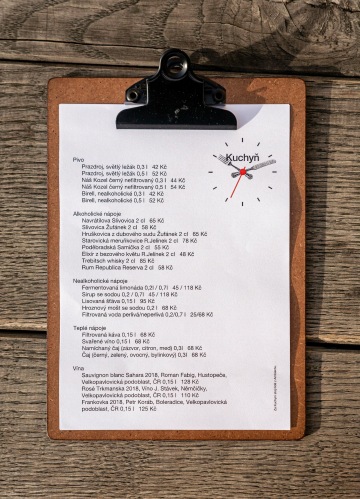 Kuchyň
Pivo
Prazdroj, světlý ležák 0,3 l 42 Kč
Prazdroj, světlý ležák 0,5 l 52 Kč
Náš Kozel černý nefiltrovaný 0,3 l 44 Kč
Náš Kozel černý nefiltrovaný 0,5 l 54 Kč
Birell, nealkoholické 0,3 l 42 Kč
Birell, nealkoholické 0,5 l 52 Kč
Alkoholické nápoje
Navrátilova Slivovice 2 cl 65 Kč
Slivovica Žufánek 2 cl 58 Kč
Hruškovica z dubového sudu Žufánek 2 cl 65 Kč
Starorická meruňkovice R.Jelínek 2 cl 78 Kč
Poděbradská Samička 2 cl 55 Kč
Elixír z bezového květu R.Jelínek 2 cl 48 Kč
Trebitsch whisky 2 cl 85 Kč
Rum Republica Reserva 2 cl 58 Kč
Nealkoholické nápoje
Fermentovaná limonáda 0,2l / 0,7l 45 / 118 Kč
Sirup se sodou 0,2 / 0,7l 45 / 118 Kč
Lisovaná šťáva 0,15 l 95 Kč
Hroznový mošt se sodou 0,2 l 68 Kč
Filtrovaná voda perlivá/neperlivá 0,2/0,7 l 25/68 Kč
Teplé nápoje
Filtrovaná káva 0,15 l 68 Kč
Svařené víno 0,15 l 68 Kč
Namíchaný čaj (zázvor, citron, med) 0,3l 68 Kč
Čaj (černý, zelený, ovocný, bylinkový) 0,3l 68 Kč
Vína
Sauvignon blanc Sahara 2018, Roman Fabig, Hustopeče,
Velkopavlovická podoblast, ČR 0,15 l 128 Kč
Rosé Trkmanska 2018, Víno J. Stávek, Němčičky,
Velkopavlovická podoblast, ČR 0,15 l 110 Kč
Frankovka 2018, Petr Koráb, Boleradice, Velkopavlovická
podoblast, ČR 0,15 l 125 Kč